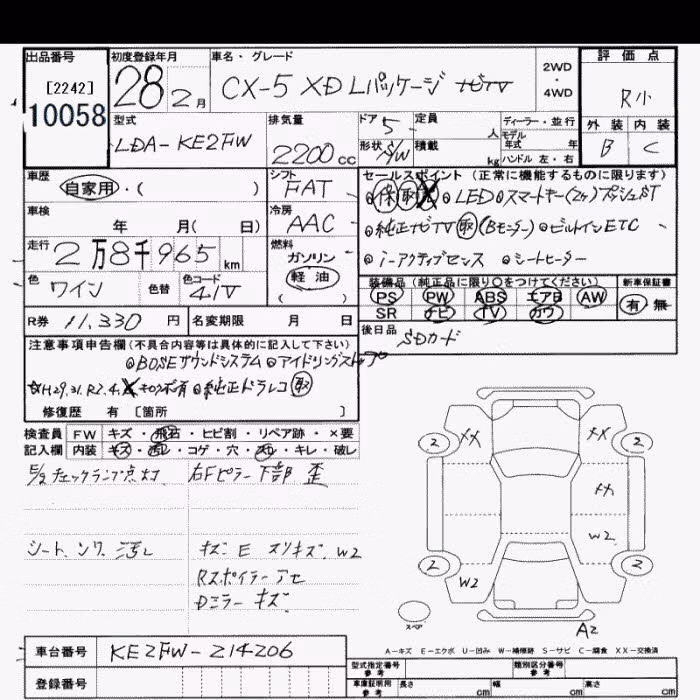 出品番号 初度登録年月 車名・グレード 2WD・4WD 評価点
[2242] 10058 28 2月 CX-5 XD Lパッケージ ナビTV R小
型式 LDA-KE2FW 排気量 2200cc ドア 5 定員 人 ディーラー・並行 外装 内装
形状 S/W 積載 kg モデル年式 年 ハンドル 左・右 B C
車歴 自家用・( ) シフト FAT セールスポイント(正常に機能するものに限ります)
◎LED◎スマートキー(2ヶ)プッシュST
車検 年 月( 日) 冷房 AAC ◎純正ナビTV取(Bモニター)◎ビルトインETC
走行 2万8千965km 燃料 ガソリン 軽油 ( ) ◎i-アクティブセンス ◎シートヒーター
色 ワイン 色替 色コード 41V 装備品(純正品に限り○をつけてください) 新車保証書
PS PW ABS エアB AW 有 無
SR ナビ TV カワ
R券 11,330円 名変期限 月 日 後日品 SDカード
注意事項申告欄(不具合内容等は具体的に記入して下さい)
◎BOSEサウンドシステム◎アイドリングストップ
☆H29.31.R2.4. キロク有◎純正ドラレコ取
修復歴 有 [箇所 ]
検査員 FW キズ・飛石・ヒビ割・リペア跡・×要
記入欄 内装 キズ・汚レ・コゲ・穴・スレ・キレ・破レ
E/gチェックランプ点灯 右Fピラー下部 歪
シート、ンワ 汚レ キズ E スリキズ W2
Rスポイラーアセ
Dミラーキズ
XX XX
2 2
XX
W2
2 2
W2
スペア A2
A-キズ E-エクボ U-凹み W-補修跡 S-サビ C-腐食 XX-交換済
車台番号 KE2FW-214206
登録番号
型式指定番号 参考 類別区分番号 参考
車庫証明用 参考 長さ cm 幅 cm 高さ cm